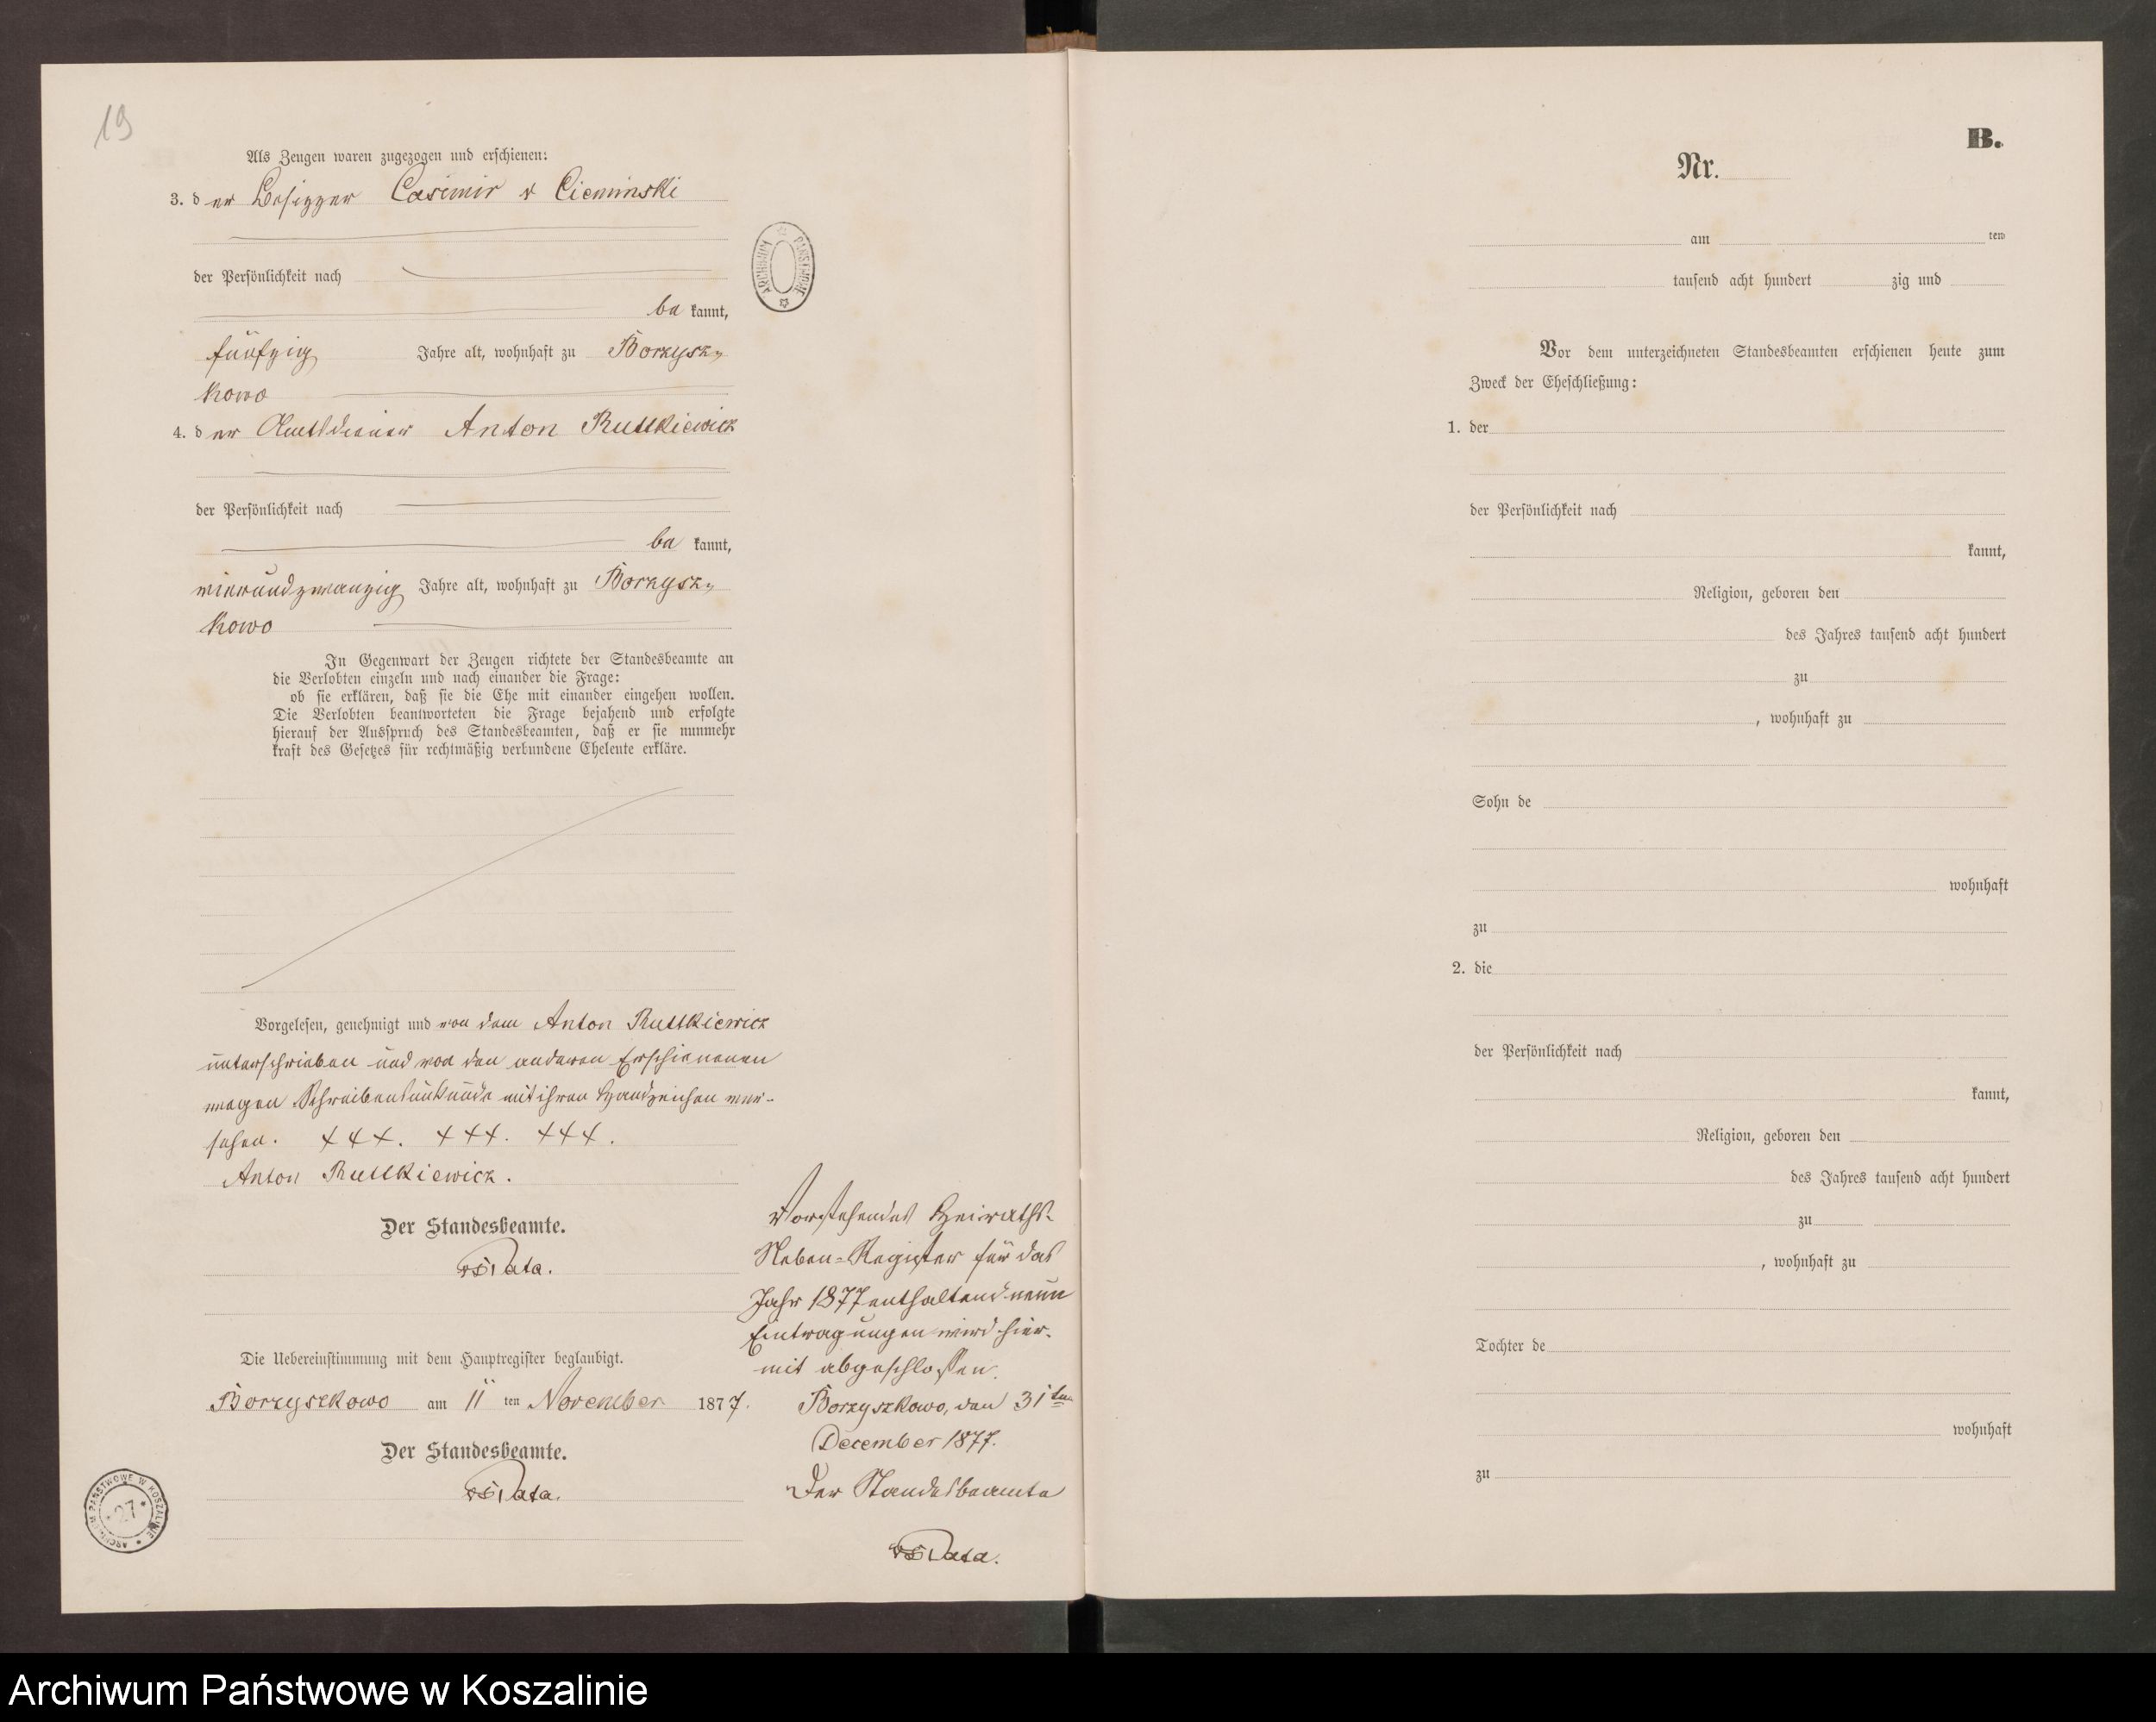 19
Als Zeugen waren zugezogen und erschienen:
3. der Besitzer Casimir v Cieminski
der Persönlichkeit nach
be kannt,
fünfzig Jahre alt, wohnhaft zu Borzysz-
kowo
4. der Amtsdiener Anton Rutkiewicz
der Persönlichkeit nach
be kannt,
vierundzwanzig Jahre alt, wohnhaft zu Borzysz-
kowo
In Gegenwart der Zeugen richtete der Standesbeamte an
die Verlobten einzeln und nach einander die Frage:
ob sie erklären, daß sie die Ehe mit einander eingehen wollen.
Die Verlobten beantworteten die Frage bejahend und erfolgte
hierauf der Ausspruch des Standesbeamten, daß er sie nunmehr
kraft des Gesetzes für rechtmäßig verbundene Eheleute erkläre.
Vorgelesen, genehmigt und von dem Anton Rutkiewicz
unterschrieben und von den anderen Erschienenen
wegen Schreibensunkunde mit ihren Handzeichen ver-
sehen. +++. +++. +++.
Anton Rutkiewicz.
Der Standesbeamte.
Die Uebereinstimmung mit dem Hauptregister beglaubigt.
Borzyszkowo am 11 ten November 1877.
Der Standesbeamte.
Vorstehendes Heiraths-
Neben-Register für das
Jahr 1877 enthaltend neun
Eintragungen wird hier-
mit abgeschlossen.
Borzyszkowo, den 31ten
December 1877.
Der Standesbeamte
ARCHIWUM PAŃSTWOWE
ARCHIWUM PAŃSTWOWE W KOSZALINIE
27
B.
Nr.
am ten
tausend acht hundert zig und
Vor dem unterzeichneten Standesbeamten erschienen heute zum
Zweck der Eheschließung:
1. der
der Persönlichkeit nach
kannt,
Religion, geboren den
des Jahres tausend acht hundert
zu
, wohnhaft zu
Sohn de
wohnhaft
zu
2. die
der Persönlichkeit nach
kannt,
Religion, geboren den
des Jahres tausend acht hundert
zu
, wohnhaft zu
Tochter de
wohnhaft
zu
Archiwum Państwowe w Koszalinie